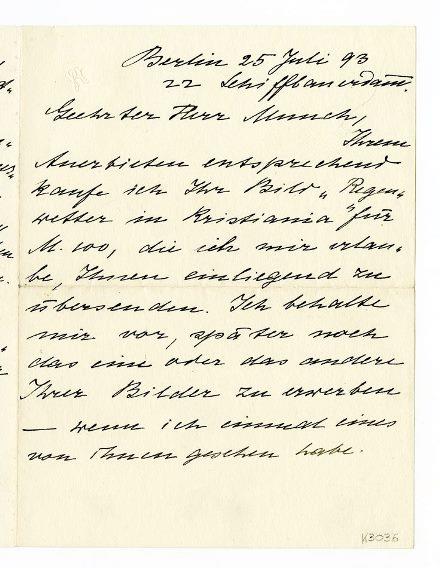 Berlin 25 Juli 93
22 Schiffbauerdam.
Geehrter Herr Munch,
Ihrem
Anerbieten entsprechend
kaufe ich Ihr Bild „Regen„
wetter in Kristiania" für
M. 100, die ich mir erlau„
be, Ihnen einliegend zu
übersenden. Ich behalte
mir vor, später noch
das eine oder das andere
Ihrer Bilder zu erwerben
— wenn ich einmal eines
von Ihnen gesehen habe.
K3036